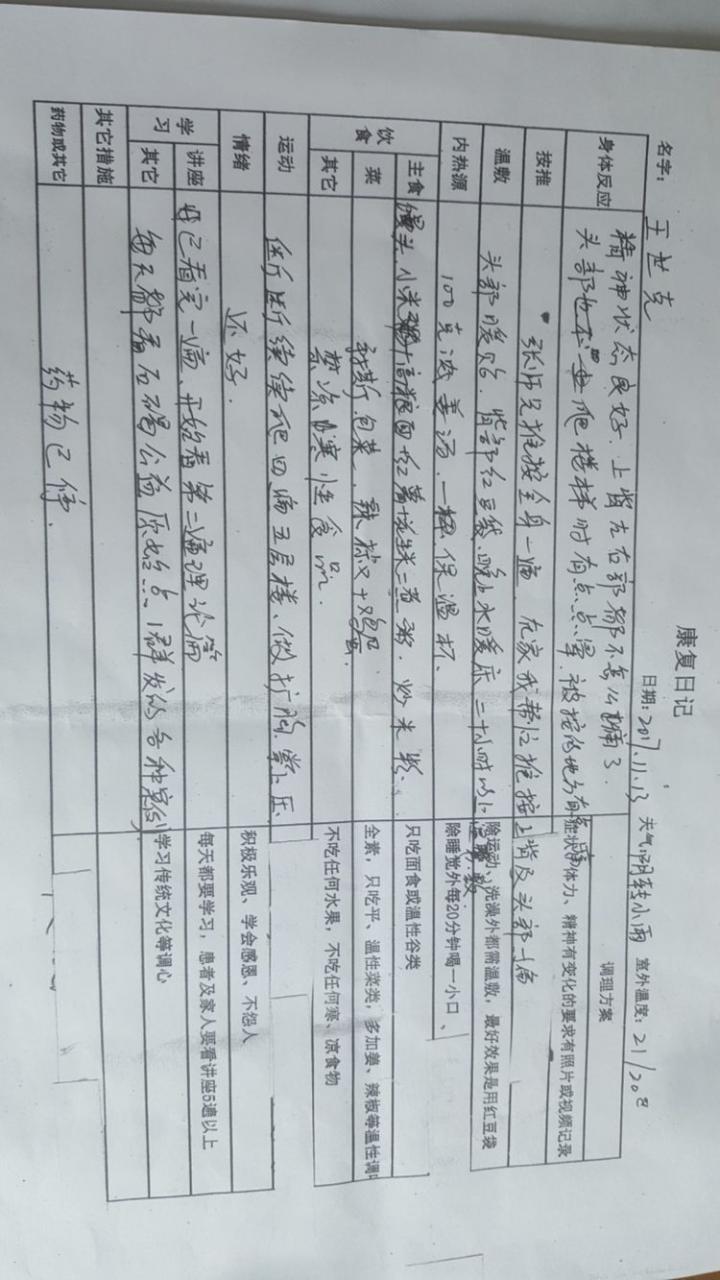 康复日记
名字: 王世克 日期: 2017.11.13 天气: 阴转小雨 室外温度: 21/20
调理方案
身体反应 精神状态良好. 上背左右部都不怎么痛了.
头部也 爬楼梯时有点点晕. 被按的地方有点痛 症状、体力、精神有变化的要求有照片或视频记录
按推 张师兄推按全身一遍. 在家我帮他推按上背及头部一遍
温敷 头部暖贴. 背部红豆袋. 晚上水暖床 二十小时以上 除运动、洗澡外都需温敷，最好效果是用红豆袋
内热源 100克浓姜汤. 一 保温杯. 除睡觉外每20分钟喝一小口、
饮食 主食 馒头. 小米 高粮面 红薯 粥. 炒米粉. 只吃面食或温性谷类
菜 包菜. 辣椒 全素，只吃平、温性菜类，多加姜、辣椒等温性调
其它 禁凉寒性食品. 不吃任何水果，不吃任何寒、凉食物
运动 断断续续爬四遍五层楼、做扩胸.
情绪 还好. 积极乐观、学会感恩、不怨人
学习 讲座 已看完一遍、开始看第二遍理论篇 每天都要学习，患者及家人要看讲座5遍以上
其它 每天都看石碣公益原始点1群发的各种案例 学习传统文化等调心
其它措施
药物或其它 药物已停.